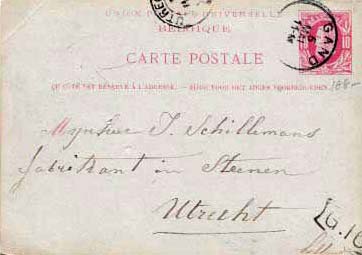 UNION POSTALE UNIVERSELLE
BELGIQUE
CARTE POSTALE
GAND
10
108-
CE CÔTÉ EST RÉSERVÉ À L'ADRESSE. — ZIJDE VOOR HET ADRES VOORBEHOUDEN.
Mynheer J. Schillemans
fabrikant in Steenen
Utrecht